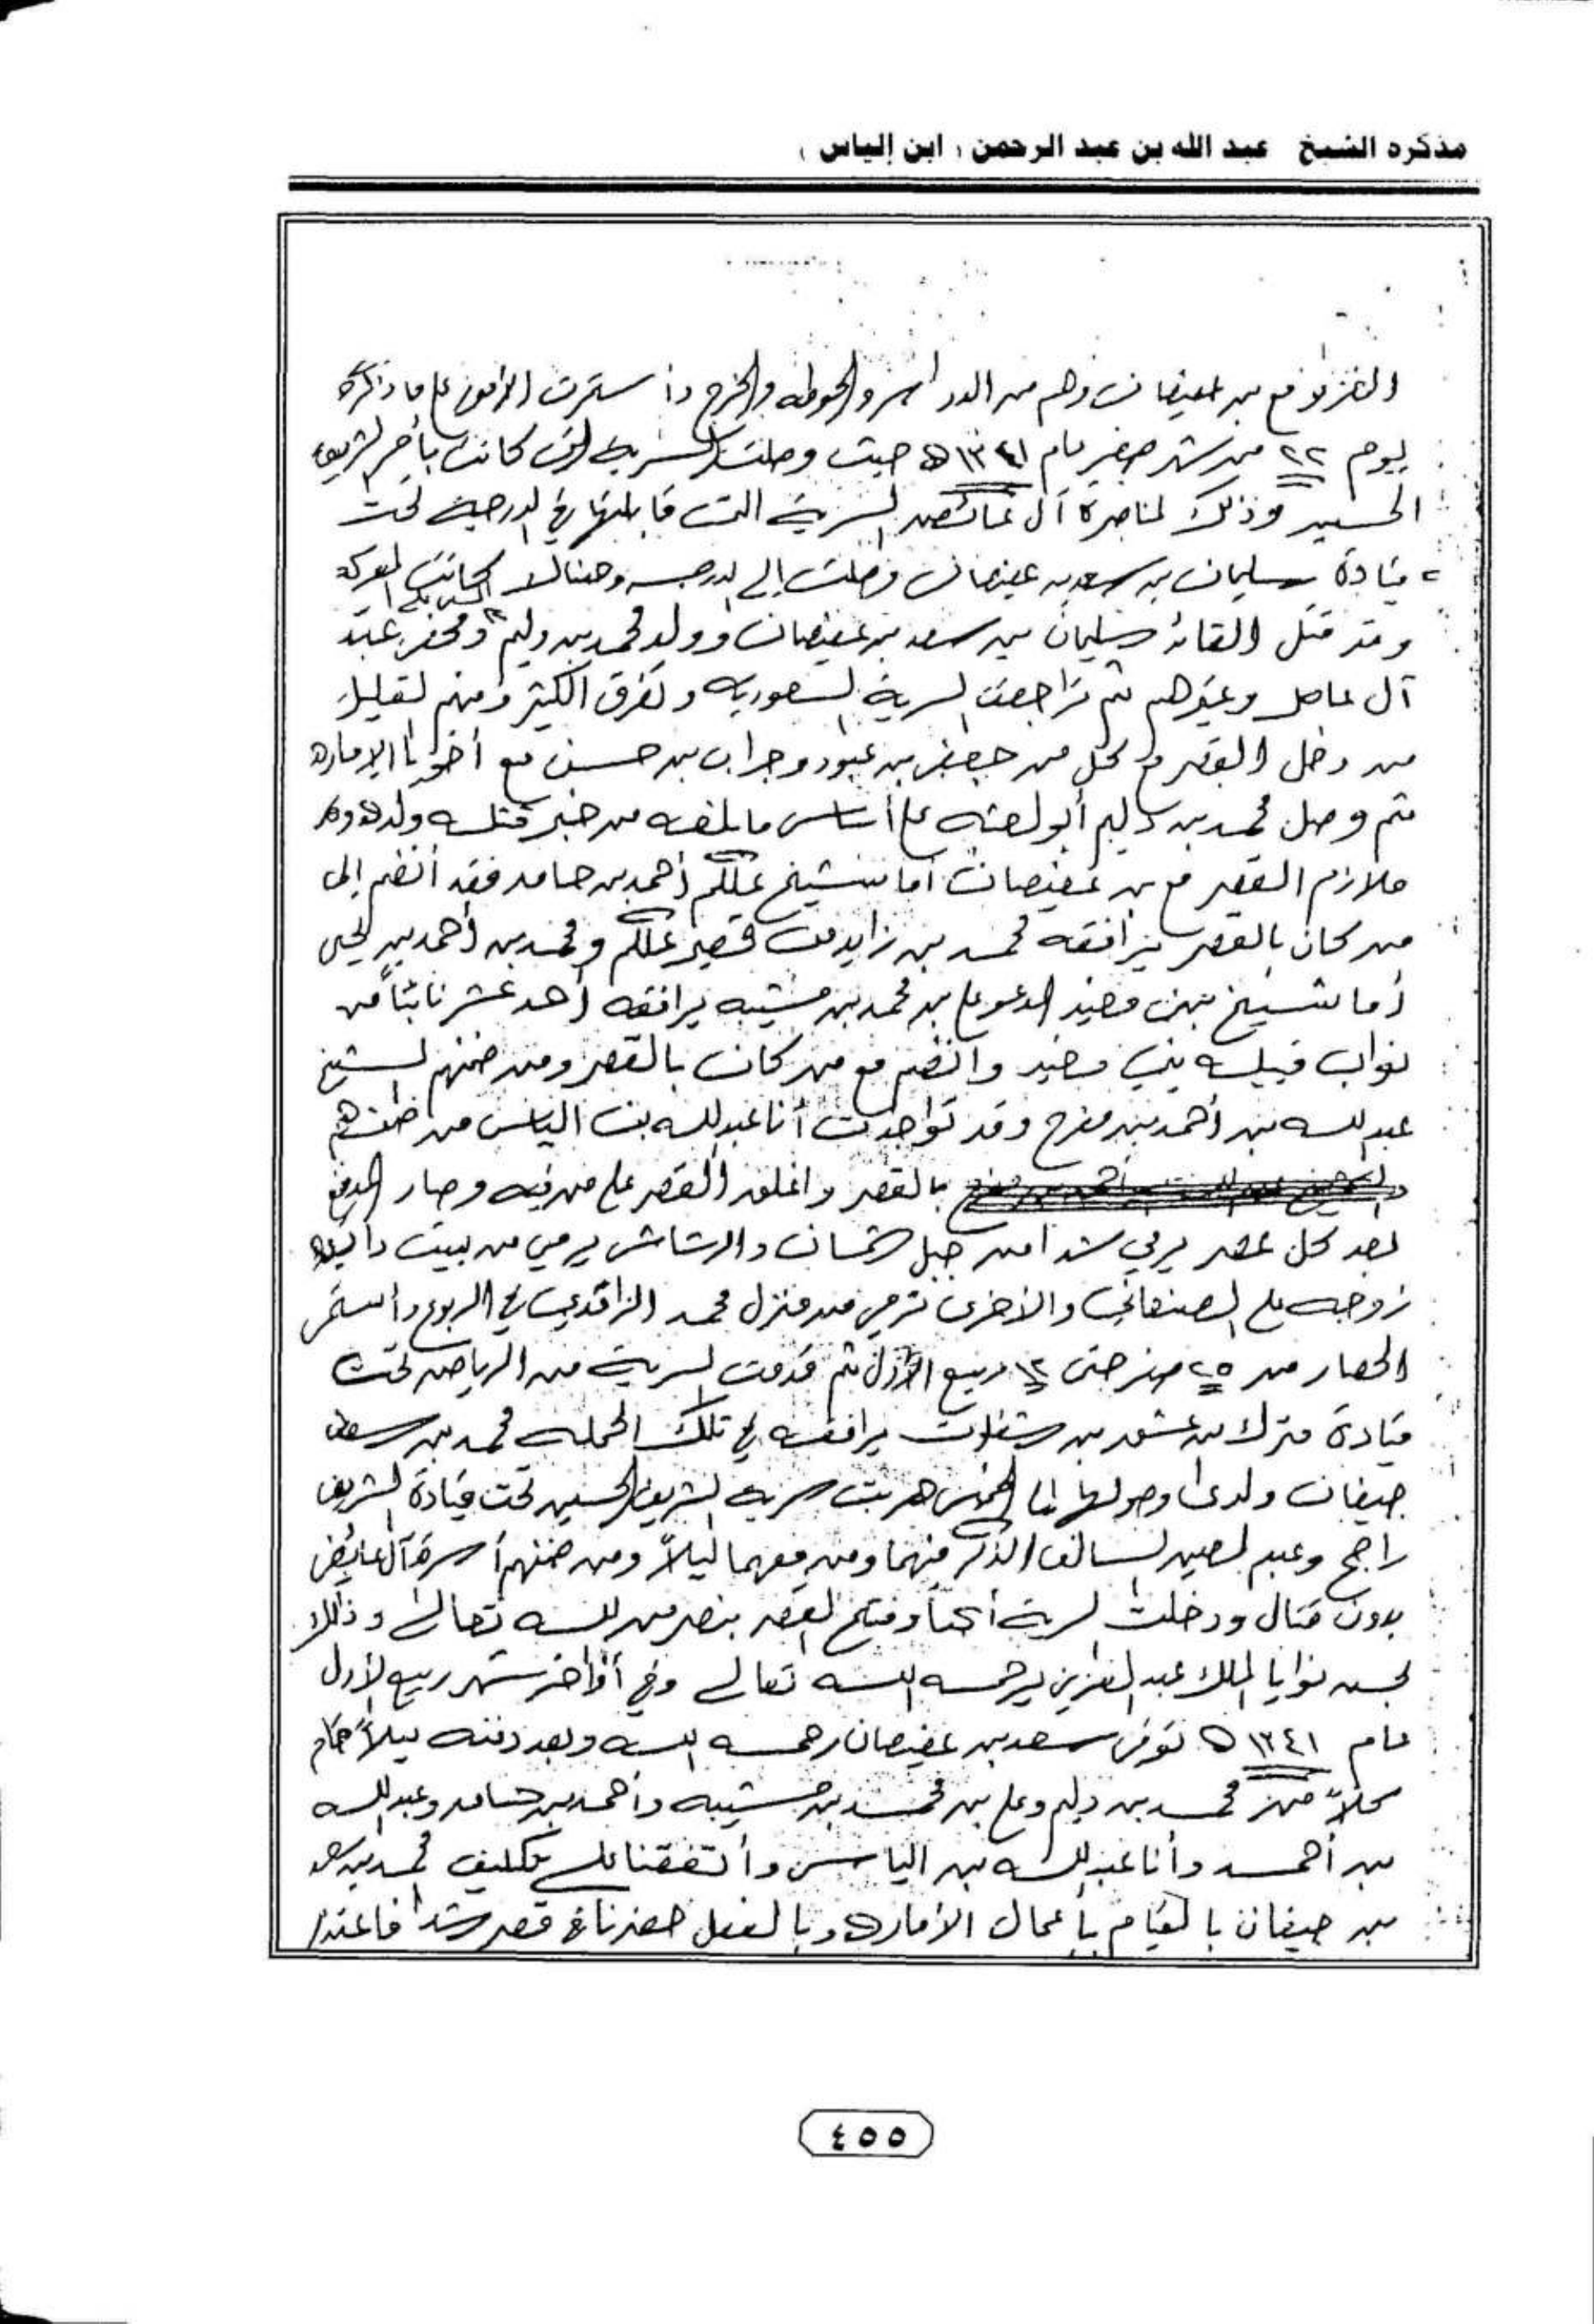 مذكره الشيخ عبد الله بن عبد الرحمن ( ابن إلياس )
الغزو مع بن عفيصان وهم من الدواسر والحوطه والخرج وأستمرت الأمور على ما ذكر
يوم ٢٢ من شهر صفر عام ١٣٤١ه حيث وصلت السريه التي كانت بأمر الشريف
الحسين وذلك لمناصرة آل عائض السرية التي قابلتها في الدرجية تحت
قيادة سليمان بن سعد بن عفيصان وصلت إلى الدرجه وهنالك كانت المعركه
وقد قتل القائد سليمان بن سعد بن عفيصان وولد محمد بن دليم ومحفر عبد
آل عاصل وغيرهم ثم تراجعت السرية السعوديه وتفرق الكثير ومنهم القليل
من دخل القصر مع كل من جعفر بن عبود وجراب بن حسين مع أخويا الإماره
ثم وصل محمد بن دليم أبو لعثه على أساس ما بلغه من خبر قتله ولده وكان
ملازم القصر مع بن عفيصان أما شيخ علكم أحمد بن حامد فقد أنضم إلى
من كان بالقصر يرافقه محمد بن زايد من قصير علكم ومحمد بن أحمد بن يحيى
أما شيخ بني مغيد المدعو علي بن محمد بن مشيبه يرافقه أحد عشر نائباً من
نواب قبيله بني مغيد وانضم مع من كان بالقصر ومن ضمنهم الشيخ
عبد الله بن أحمد بن مفرح وقد تواجدت أنا عبد الله بن الياس من ضمنهم
بالقصر واغلق القصر على من فيه وصار المدفع
بعد كل عصر يرمي شدا من جبل شمسان والرشاش يرمي من بيت
زوجه علي الصنعاني والأخرى ترمي من منزل محمد الزاقدي في الربوع وأستمر
الحصار من ٢٥ صفر حتى ١٢ ربيع الأول ثم قدمت السرية من الرياض تحت
قيادة مترك بن عشق بن شفلوت يرافقه في تلك الحمله محمد بن سعد
ضيفان ولدى وصولها إلى الخميس هربت سريه الشريف الحسين تحت قيادة الشريف
راجح وعبد المعين السالف الذكر منهما ومن معهما ليلاً ومن ضمنهم أسرة آل عائض
بدون قتال ودخلت السرية أبها وفتح القصر بنصر من الله تعالى وذلك
لحسن نوايا الملك عبد العزيز يرحمه الله تعالى وفي أواخر شهر ربيع الأول
عام ١٣٤١ه توفى سعد بن عفيصان رحمه الله وبعد دفنه ليلاً قام
كلاً من محمد بن دليم وعلي بن محمد بن مشيبه وأحمد بن حامد وعبد الله
بن أحمد وأنا عبد الله بن الياس وأتفقنا على تكليف محمد بن سعد
بن ضيفان بالقيام بأعمال الأماره وبالفعل حضرنا في قصر شدا فاعتذر
٤٥٥